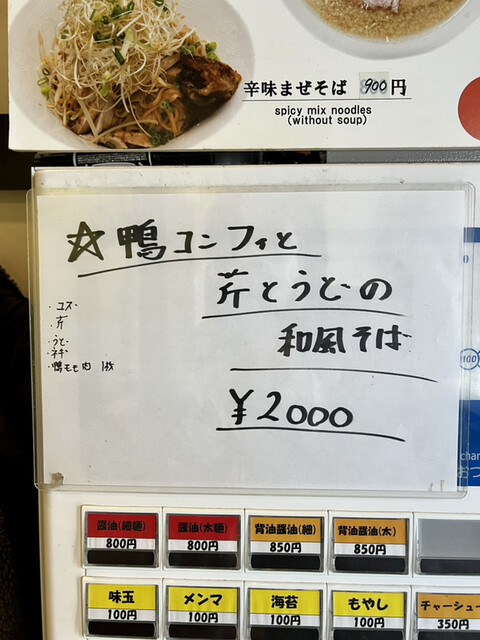 辛味まぜそば 900円
spicy mix noodles
(without soup)
☆鴨コンフィと
芹とうどの
和風そば
¥2000
・ユズ
・芹
・うど
・ネギ
・鴨モモ肉 1枚
醤油(細麺)
800円
醤油(太麺)
800円
背油醤油(細)
850円
背油醤油(太)
850円
味玉
100円
メンマ
100円
海苔
100円
もやし
100円
チャーシュー
350円
100
chan
おつ